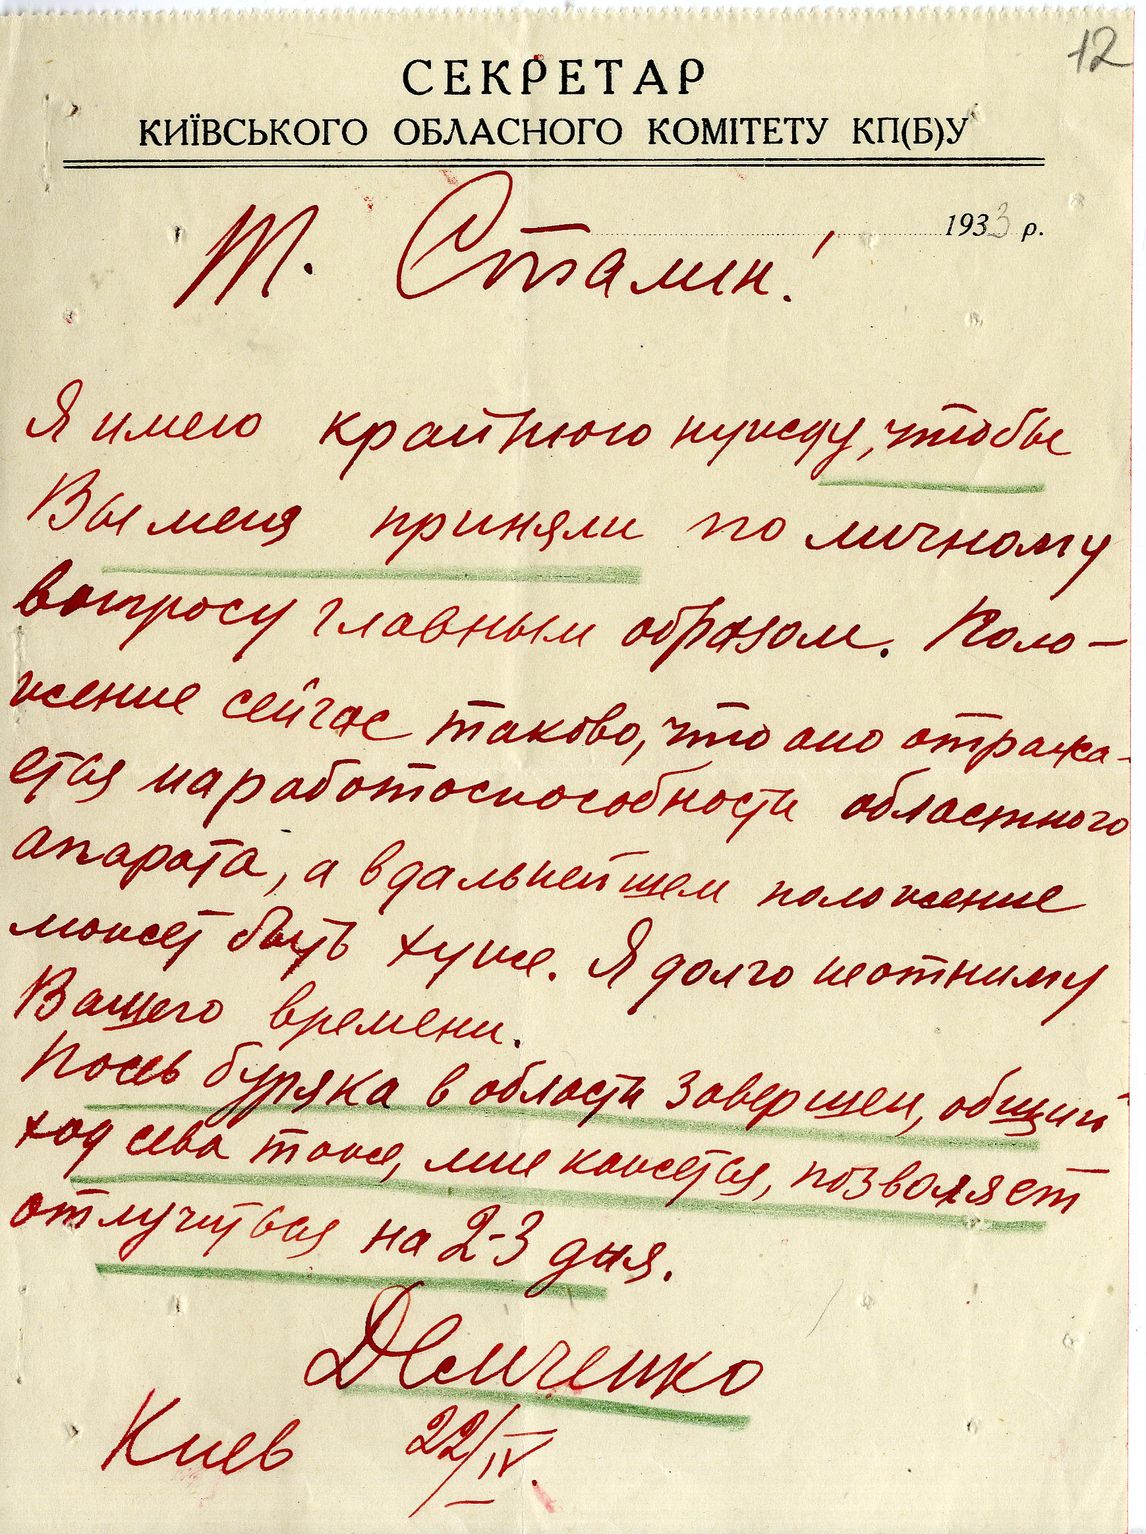 12
СЕКРЕТАР
КИЇВСЬКОГО ОБЛАСНОГО КОМІТЕТУ КП(Б)У
1933 р.
Т. Сталин!
Я имею крайнюю нужду, чтобы
Вы меня приняли по личному
вопросу главным образом. Поло-
жение сейчас таково, что оно отража-
ется на работоспособности областного
апарата, а в дальнейшем положение
может быть хуже. Я долго не отниму
Вашего времени.
Посев буряка в области завершен, общий
ход сева тоже, мне кажется, позволяет
отлучиться на 2-3 дня.
Демченко
Киев 22/IV.